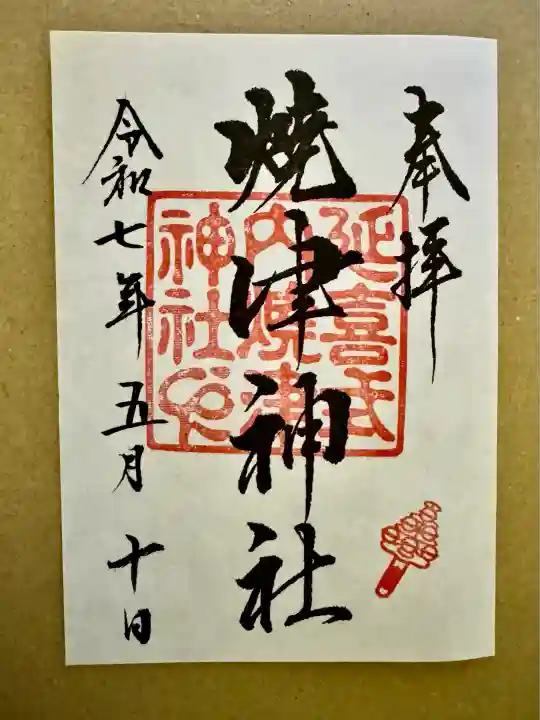 奉拝
燒津神社
延喜式
内燒津
神社印
令和七年 五月 十日